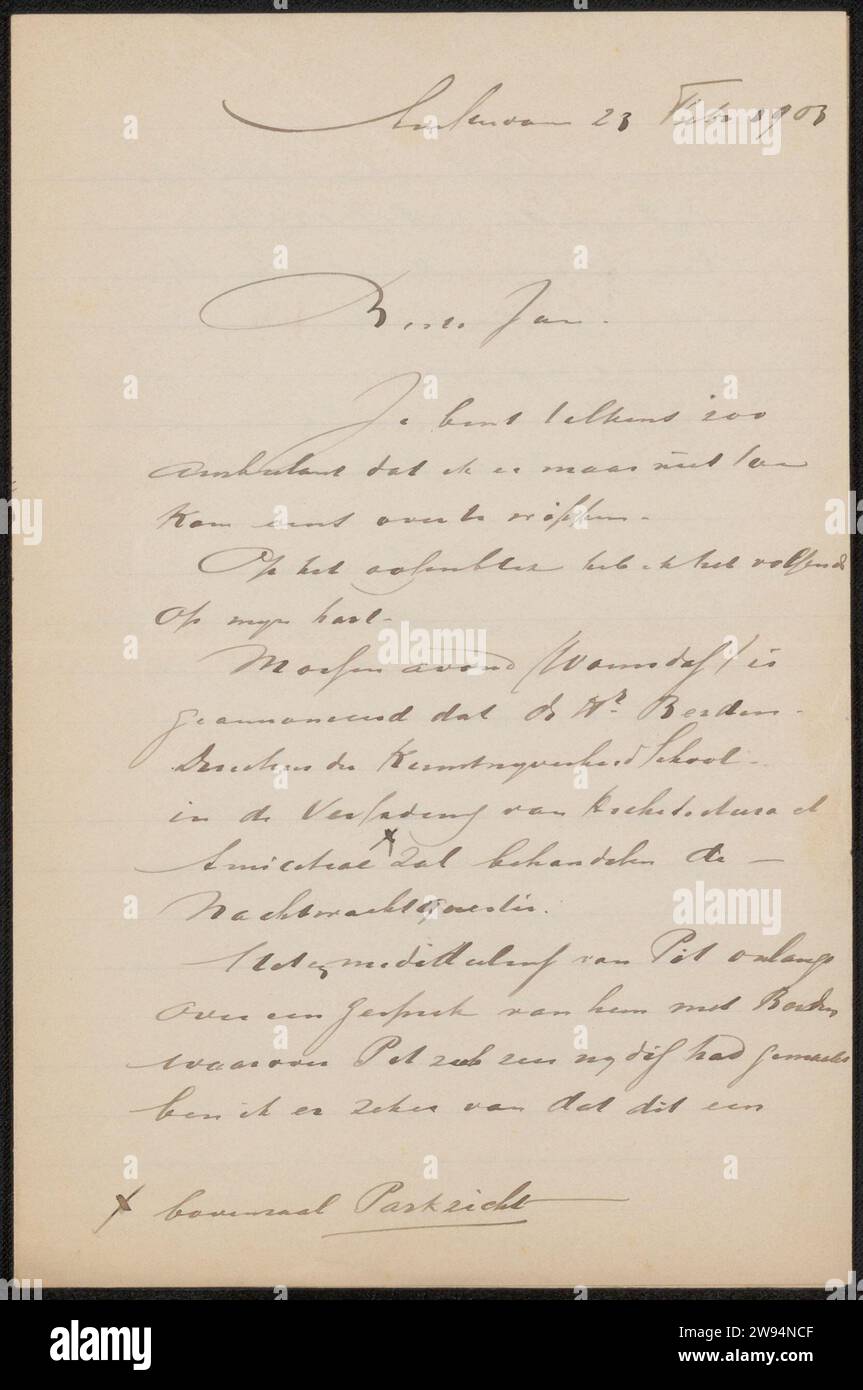 Amsterdam 23 Febr 1903
Beste Jan.
Je bent telkens zoo
ambulant dat ik er maar niet toe
kom eens over te wippen.
Op het oogenblik heb ik het volgende
op mijn hart.
Morgen avond (Woensdag) is
geannonceerd dat de Hr Berden
Directeur der Kunstnyverheid School
in de Vergadering van Architectura et
Amicitiae x zal behandelen de
Nachtwachtquestie.
van Pit onlangs
over een gesprek van hem met Berden
waarover Pit zich zeer nydig had gemaakt
ben ik er zeker van dat dit een
x bovenzaal Parkzicht
alamy
Image ID: 2W94NCF
www.alamy.com